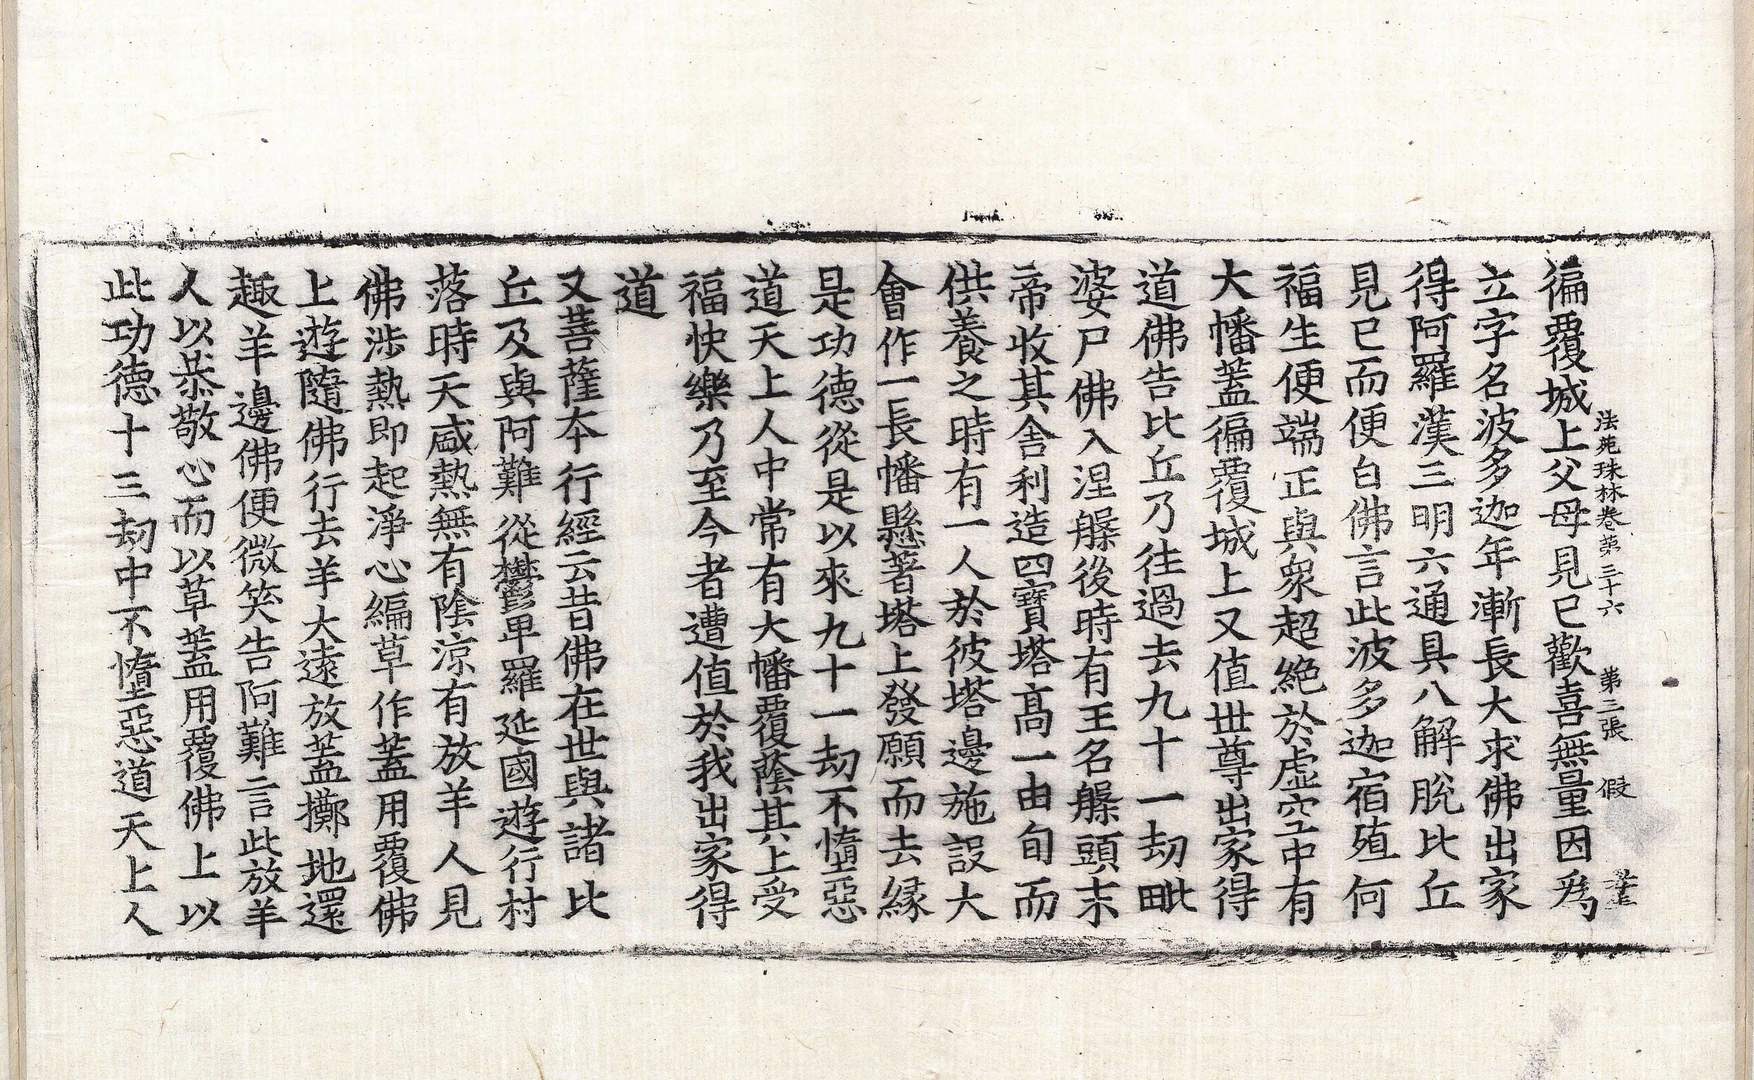 法苑珠林卷第三十六 第三張 假
徧覆城上父母見已歡喜無量因爲
立字名波多迦年漸長大求佛出家
得阿羅漢三明六通具八解脫比丘
見已而便白佛言此波多迦宿殖何
福生便端正與衆超絶於虛空中有
大幡蓋徧覆城上又值世尊出家得
道佛告比丘乃往過去九十一劫毗
婆尸佛入涅槃後時有王名槃頭末
帝收其舍利造四寶塔高一由旬而
供養之時有一人於彼塔邊施設大
會作一長幡懸著塔上發願而去緣
是功德從是以來九十一劫不墮惡
道天上人中常有大幡覆蔭其上受
福快樂乃至今者遭值於我出家得
道
又菩薩本行經云昔佛在世與諸比
丘及與阿難從鬱卑羅延國遊行村
落時天盛熱無有陰涼有放羊人見
佛涉熱即起淨心編草作蓋用覆佛
上遊隨佛行去羊大遠放蓋擲地還
趣羊邊佛便微笑告阿難言此放羊
人以恭敬心而以草蓋用覆佛上以
此功德十三劫中不墮惡道天上人